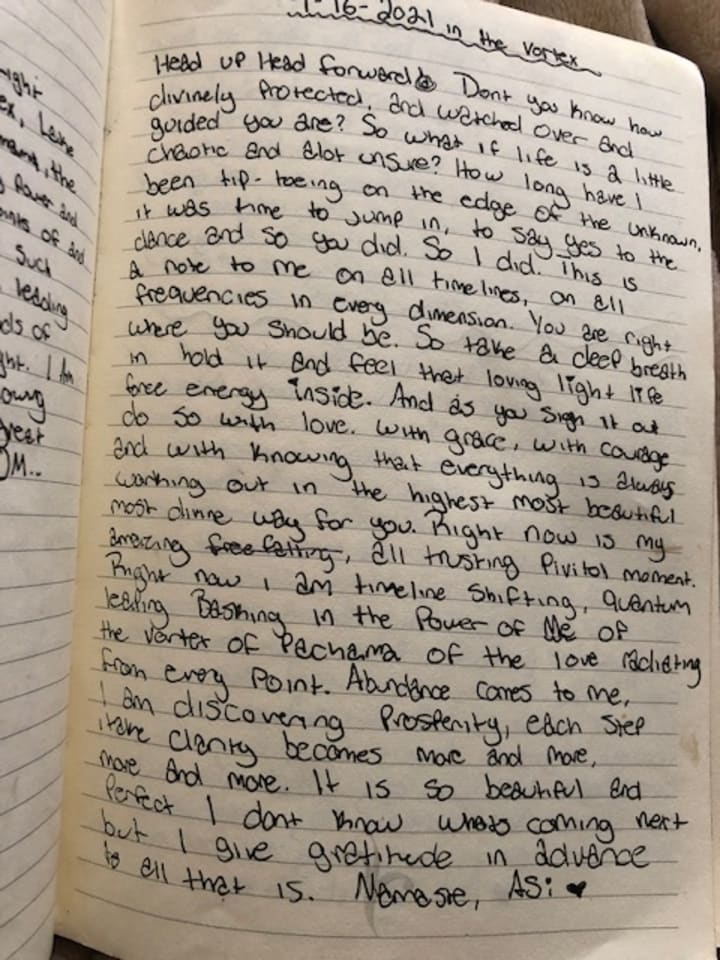 ight
ex, Leave
the
Power and
of and
Such
leading
ds of
ght. I Am
great
OM..
1-16-2021 in the Vortex
Head up Head forward Dont you know how
divinely Protected, and watched over and
guided you are? So what if life is a little
chaotic and alot unsure? How long have I
been tip-toeing on the edge of the unknown,
it was time to jump in, to say yes to the
dance and so you did. So I did. This is
a note to me on all timelines, on all
frequencies in every dimension. You are right
where you should be. So take a deep breath
in hold it and feel that loving light life
force energy inside. And as you sign it out
do so with love. with grace, with courage
and with knowing that everything is always
working out in the highest most beautiful
most divine way for you. Right now is my
amazing free falling, all trusting Pivitol moment.
Right now i am timeline shifting, quantum
leaping Basking in the Power of Me of
the vortex of Pachama of the love radiating
from every Point. Abundance comes to me,
I am discovering Prosperity, each step
i take clarity becomes more and more,
more and more. It is so beautiful and
Perfect I dont know whats coming next
but I give gratitude in advance
to all that is. Namaste, ASi ♥